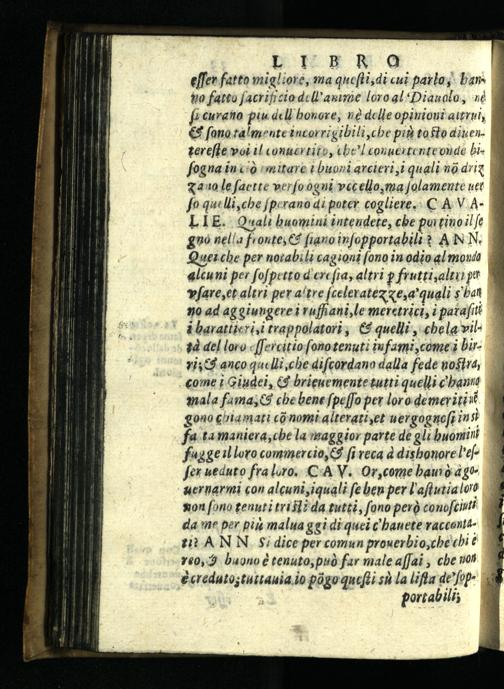 LIBRO
esser fatto migliore, ma questi, di cui parlo, han-
no fatto sacrificio dell'anime loro al Diauolo, nè
si curano piu dell'honore, nè delle opinioni altrui,
& sono talmente incorrigibili, che più tosto diuen-
tereste voi il conuertito, che'l conuertente onde bi-
sogna in ciò imitare i buoni arcieri, i quali nō driz
zano le saette verso ogni vccello, ma solamente uer
so quelli, che sperano di poter cogliere. CAVA-
LIE. Quali huomini intendete, che portino il se
gno nella fronte, & siano insopportabili? ANN.
Quei che per notabili cagioni sono in odio al mondo
alcuni per sospetto d'eresia, altri ꝑ frutti, altri per
vsare, et altri per altre sceleratezze, a'quali s'han
no ad aggiungere i ruffiani, le meretrici, i parasiti
i barattieri, i trappolatori, & quelli, che la vil-
tà del loro essercitio sono tenuti infami, come i bir-
ri; & anco quelli, che discordano dalla fede nostra,
come i Giudei, & brieuemente tutti quelli c'hanno
mala fama, & che bene spesso per loro demeriti uē
gono chiamati cō nomi alterati, et uergognosi in sì
fatta maniera, che la maggior parte de gli huomini
fugge il loro commercio, & si reca à dishonore l'es-
ser ueduto fra loro. CAV. Or, come haurò à go-
uernarmi con alcuni, iquali se ben per l'astutia loro
non sono tenuti tristi da tutti, sono però conosciuti
da me per più maluaggi di quei c'hauete racconta-
ti? ANN Si dice per comun prouerbio, chè chi è
reo, & buono è tenuto, può far male assai, che non
è creduto; tuttauia io pōgo questi sù la lista de'sop-
portabili;